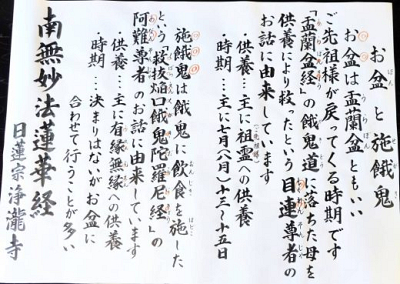 お盆と施餓鬼
お盆は盂蘭盆ともいい
ご先祖様が戻ってくる時期です
「盂蘭盆経」の餓鬼道に落ちた母を
供養により救ったという目連尊者の
お話に由来しています
・供養…主に祖霊への供養
・時期…主に七月八月十三〜十五日
施餓鬼は餓鬼に飲食を施した
という「救抜焔口餓鬼陀羅尼経」の
阿難尊者のお話に由来しています
・供養…主に有縁無縁への供養
・時期…決まりはないがお盆に
合わせて行うことが多い
南無妙法蓮華経
日蓮宗浄瀧寺